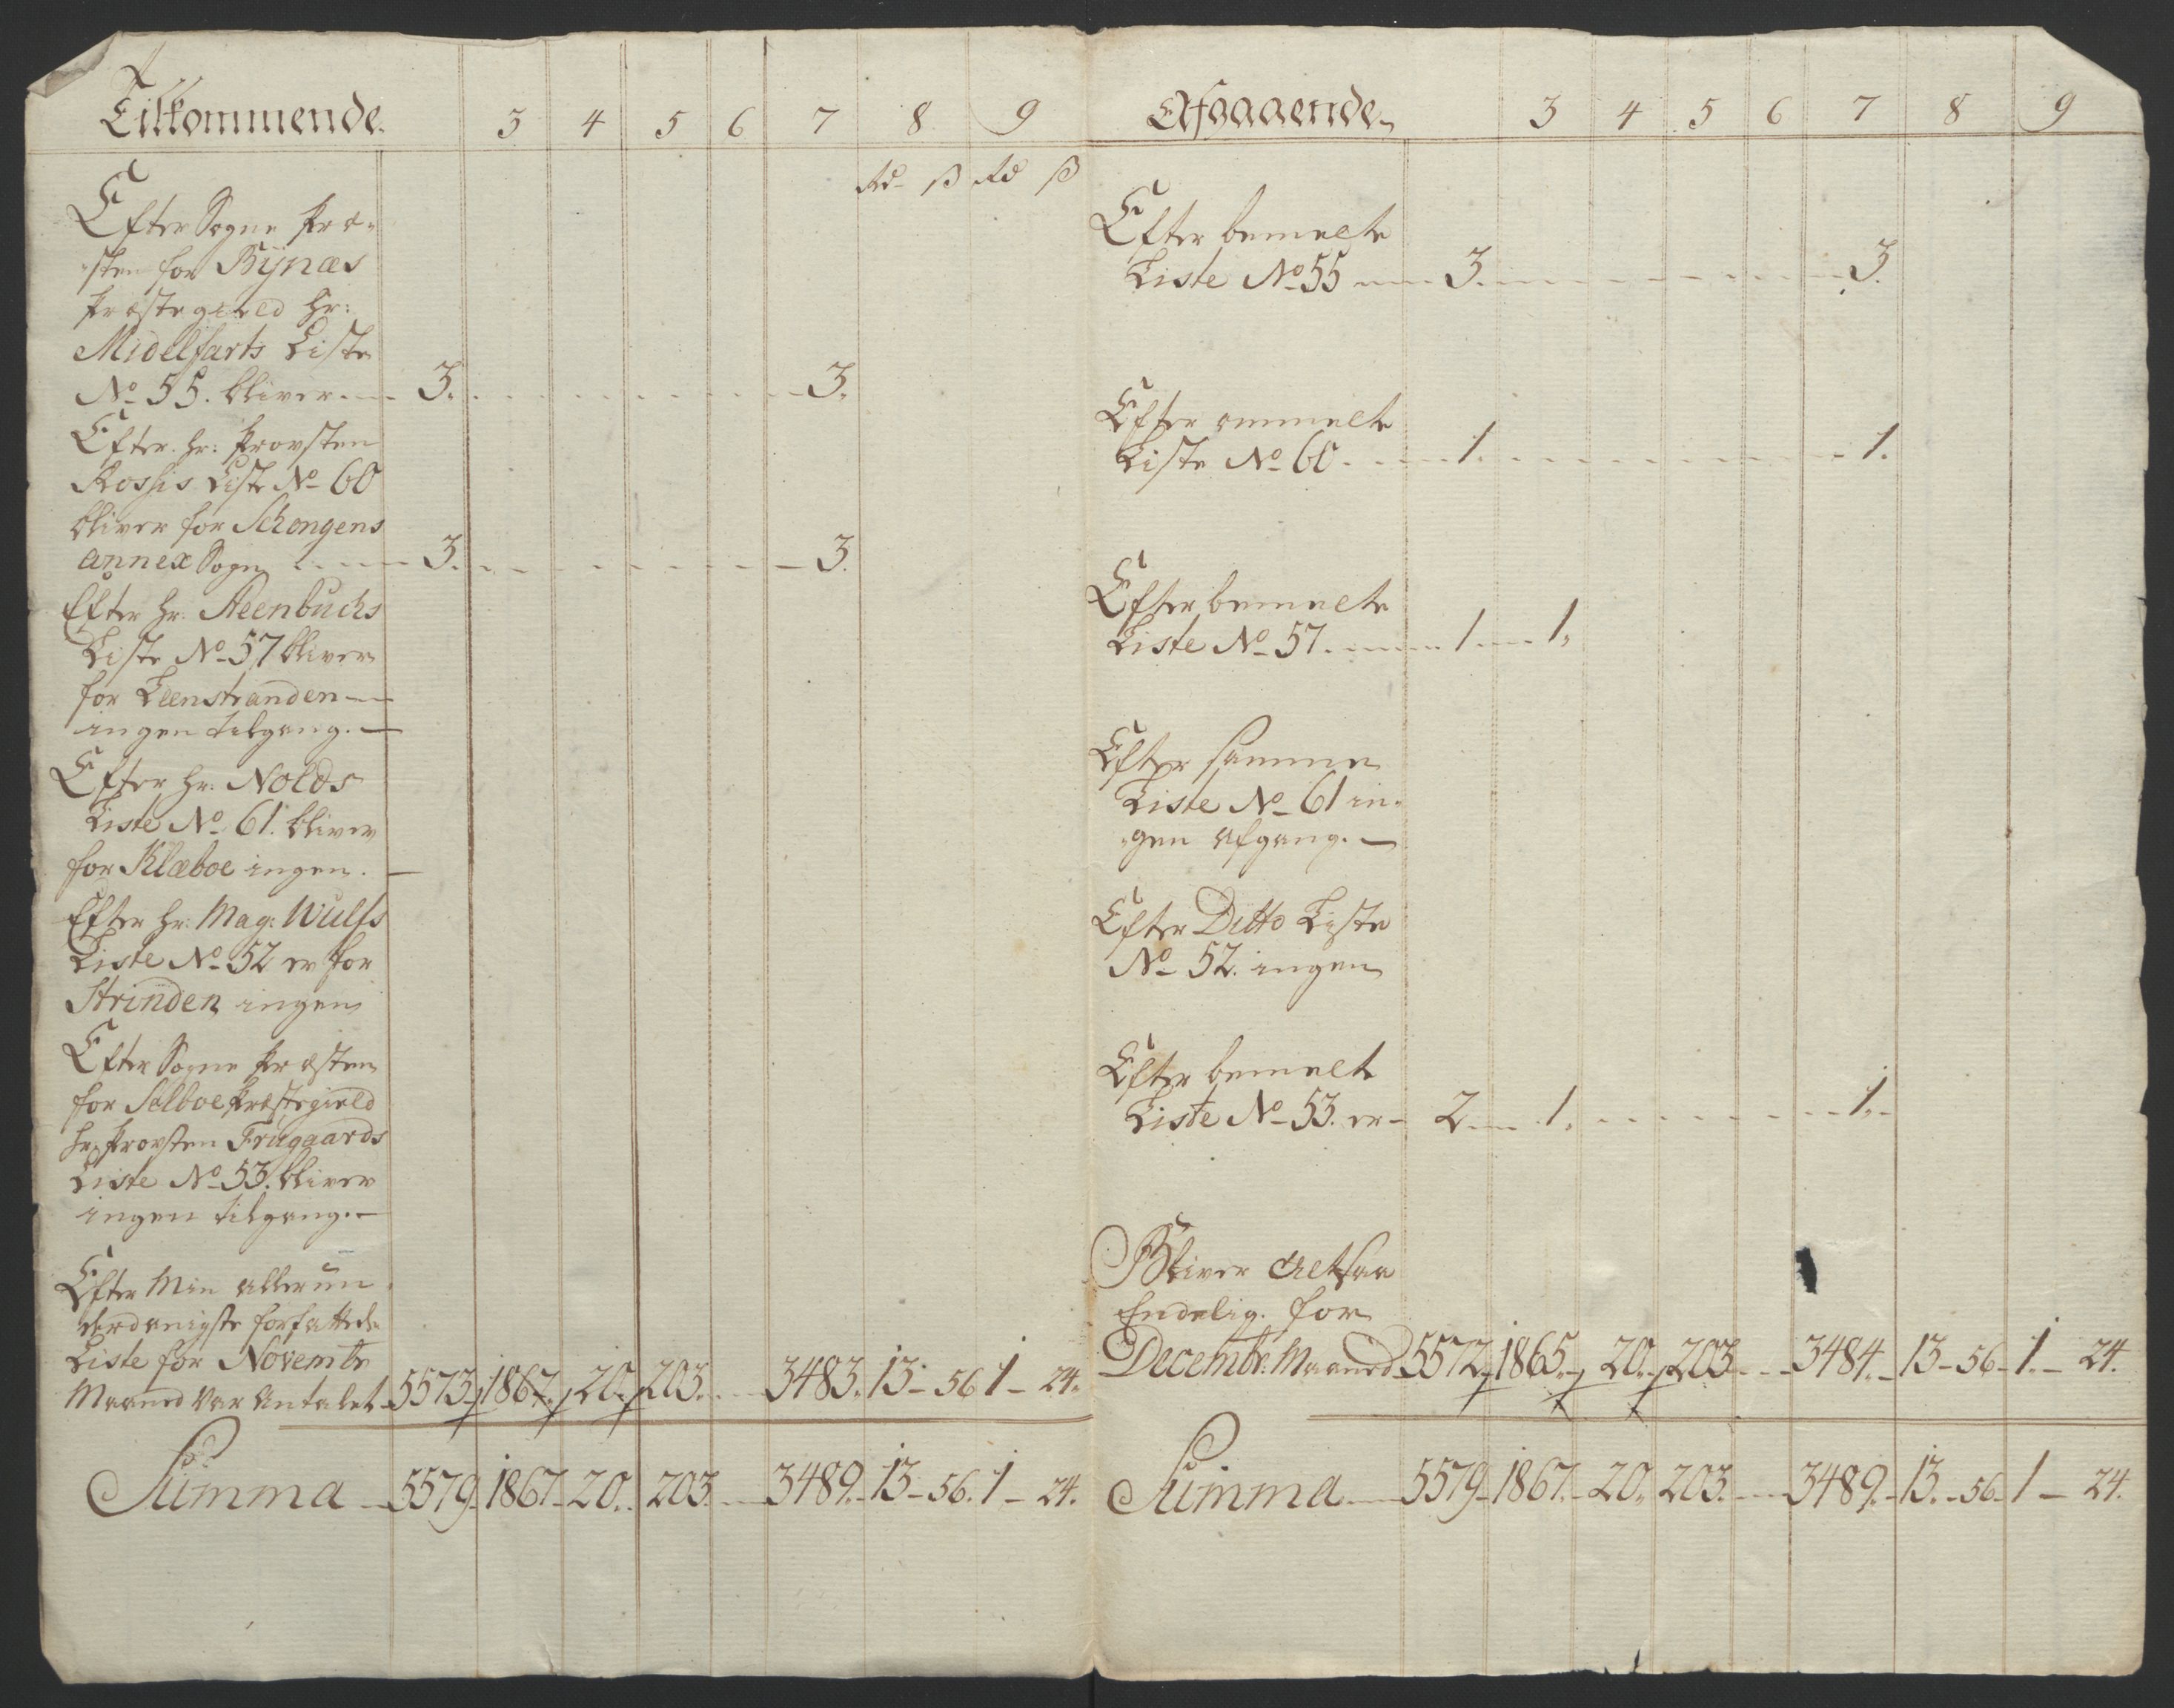 Tilkommende. 3 4 5 6 7 8 9
Rd ß Rd ß
Efter Sogne Præ-
sten for Bÿnæs
Præstegield Hr:
Midelfarts Liste
No 55. bliver - 3. - 3.
Efter Hr: Provsten
Liste No 60
bliver for
annex Sogn - 3. - 3.
Efter Hr: Steenbuchs
Liste No 57 bliver
for Leenstranden
ingen tilgang. -
Efter Hr: Nolds
Liste No 61. bliver
for Klæboe ingen. -
Efter Hr: Mag: Wulfs
Liste No 52 er for
Strinden ingen
Efter Sogne Præsten
for Selboe Præstegield
Hr Provsten
Liste No 53. bliver
ingen tilgang. -
Efter Min allerun
derdanigste forfattede
Liste for Novembr
Maaned var Antalet 5573. 1867. 20. 203. - 3483. 13 - 56 1 - 24.
Summa - 5579. 1867 - 20. 203. - 3489. - 13 - 56. 1 - 24.
Afgaaende 3 4 5 6 7 8 9
Efter bemelte
Liste No 55 - 3. - 3.
Efter ommelte
Liste No 60. - 1. - 1.
Efter bemelte
Liste No 57. - 1 - 1.
Efter samme
Liste No 61 in-
gen afgang. -
Efter Ditto Liste
No 52. ingen
Efter bemelte
Liste No 53. er - 2 - 1. - 1. -
Bliver Altsaa
Endelig. for
Decembr: Maaned 5572. 1865. 20. 203 - 3484. - 13 - 56 - 1. - 24.
Summa - 5579 - 1867. - 20. 203. - 3489. - 13. - 56 - 1 - 24.